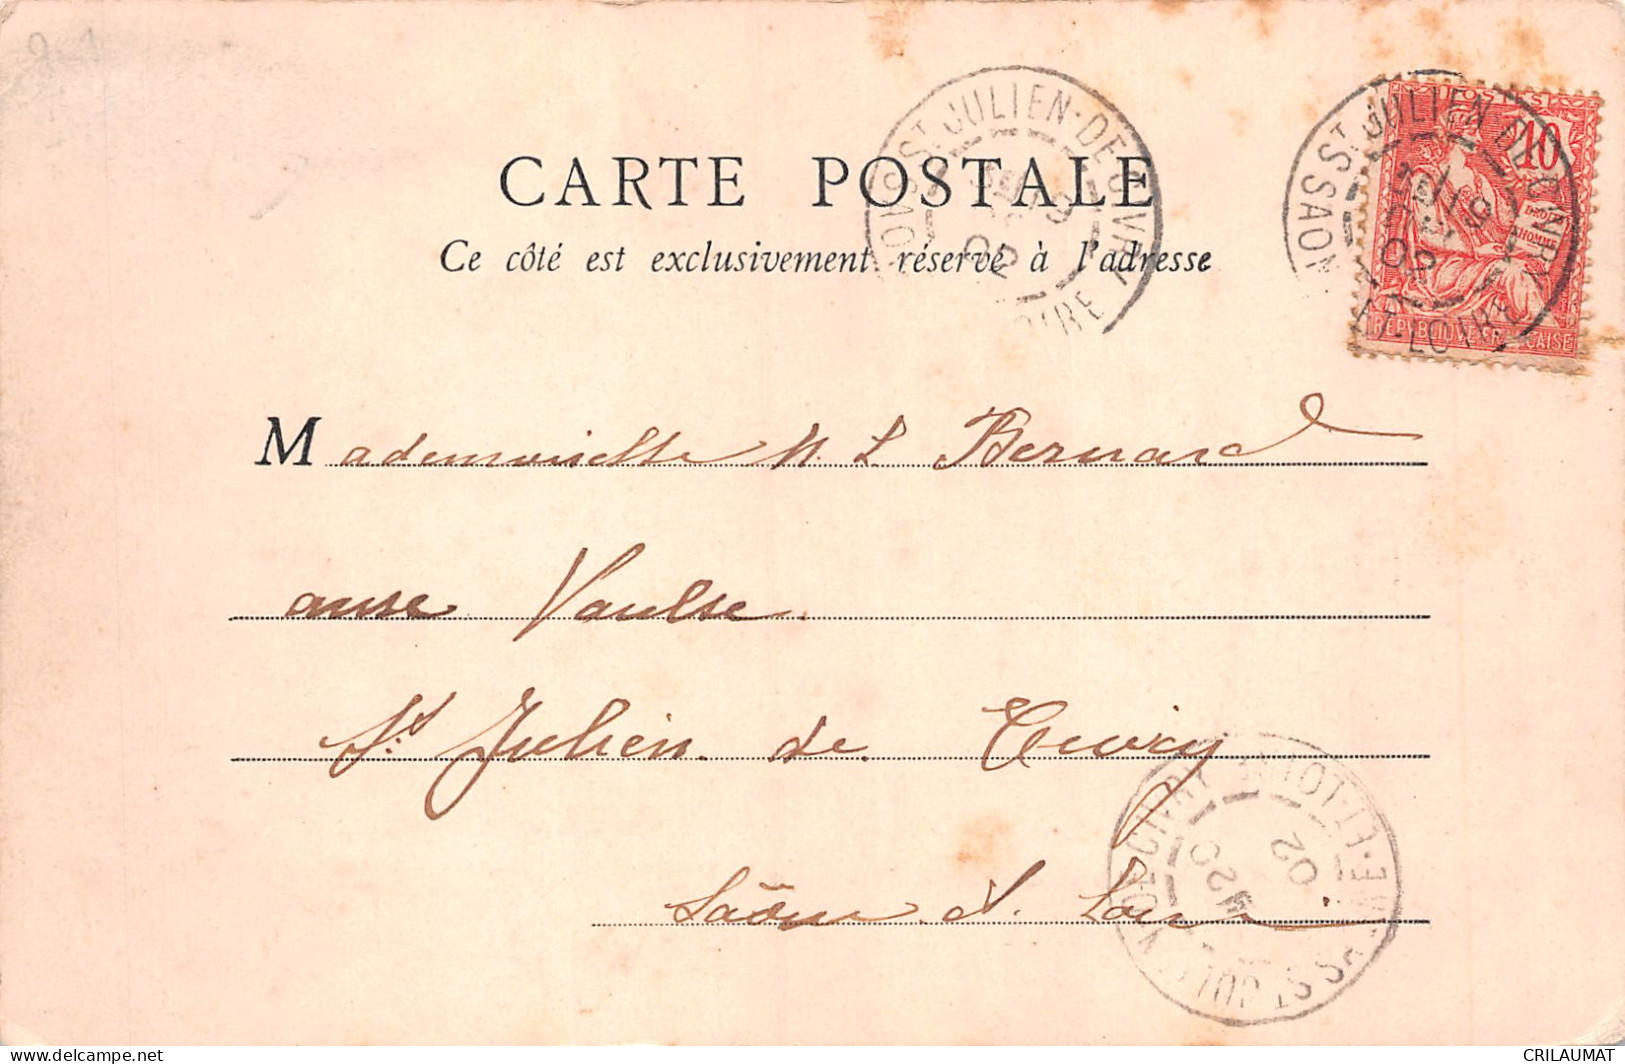 CARTE POSTALE
Ce côté est exclusivement réservé à l'adresse
ST JULIEN-DE-CIVRY
SAONE ET-LOIRE
02
POSTES
10
DROITS
HOMME
REPUBLIQUE FRANCAISE
ST JULIEN-DE-CIVRY
SAONE ET-LOIRE
02
Mademoiselle M. L. Bernard
St Julien de Civry
Saône et Loire
ST JULIEN-DE-CIVRY
SAONE-ET-LOIRE
02
www.delcampe.net
CRILAUMAT